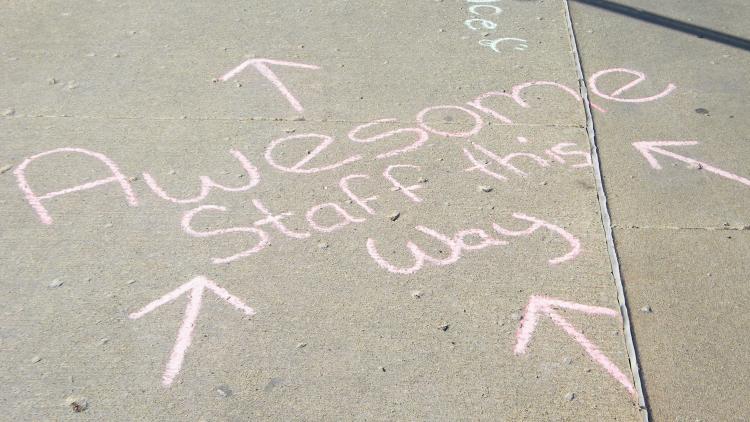 Awesome
Staff this
Way